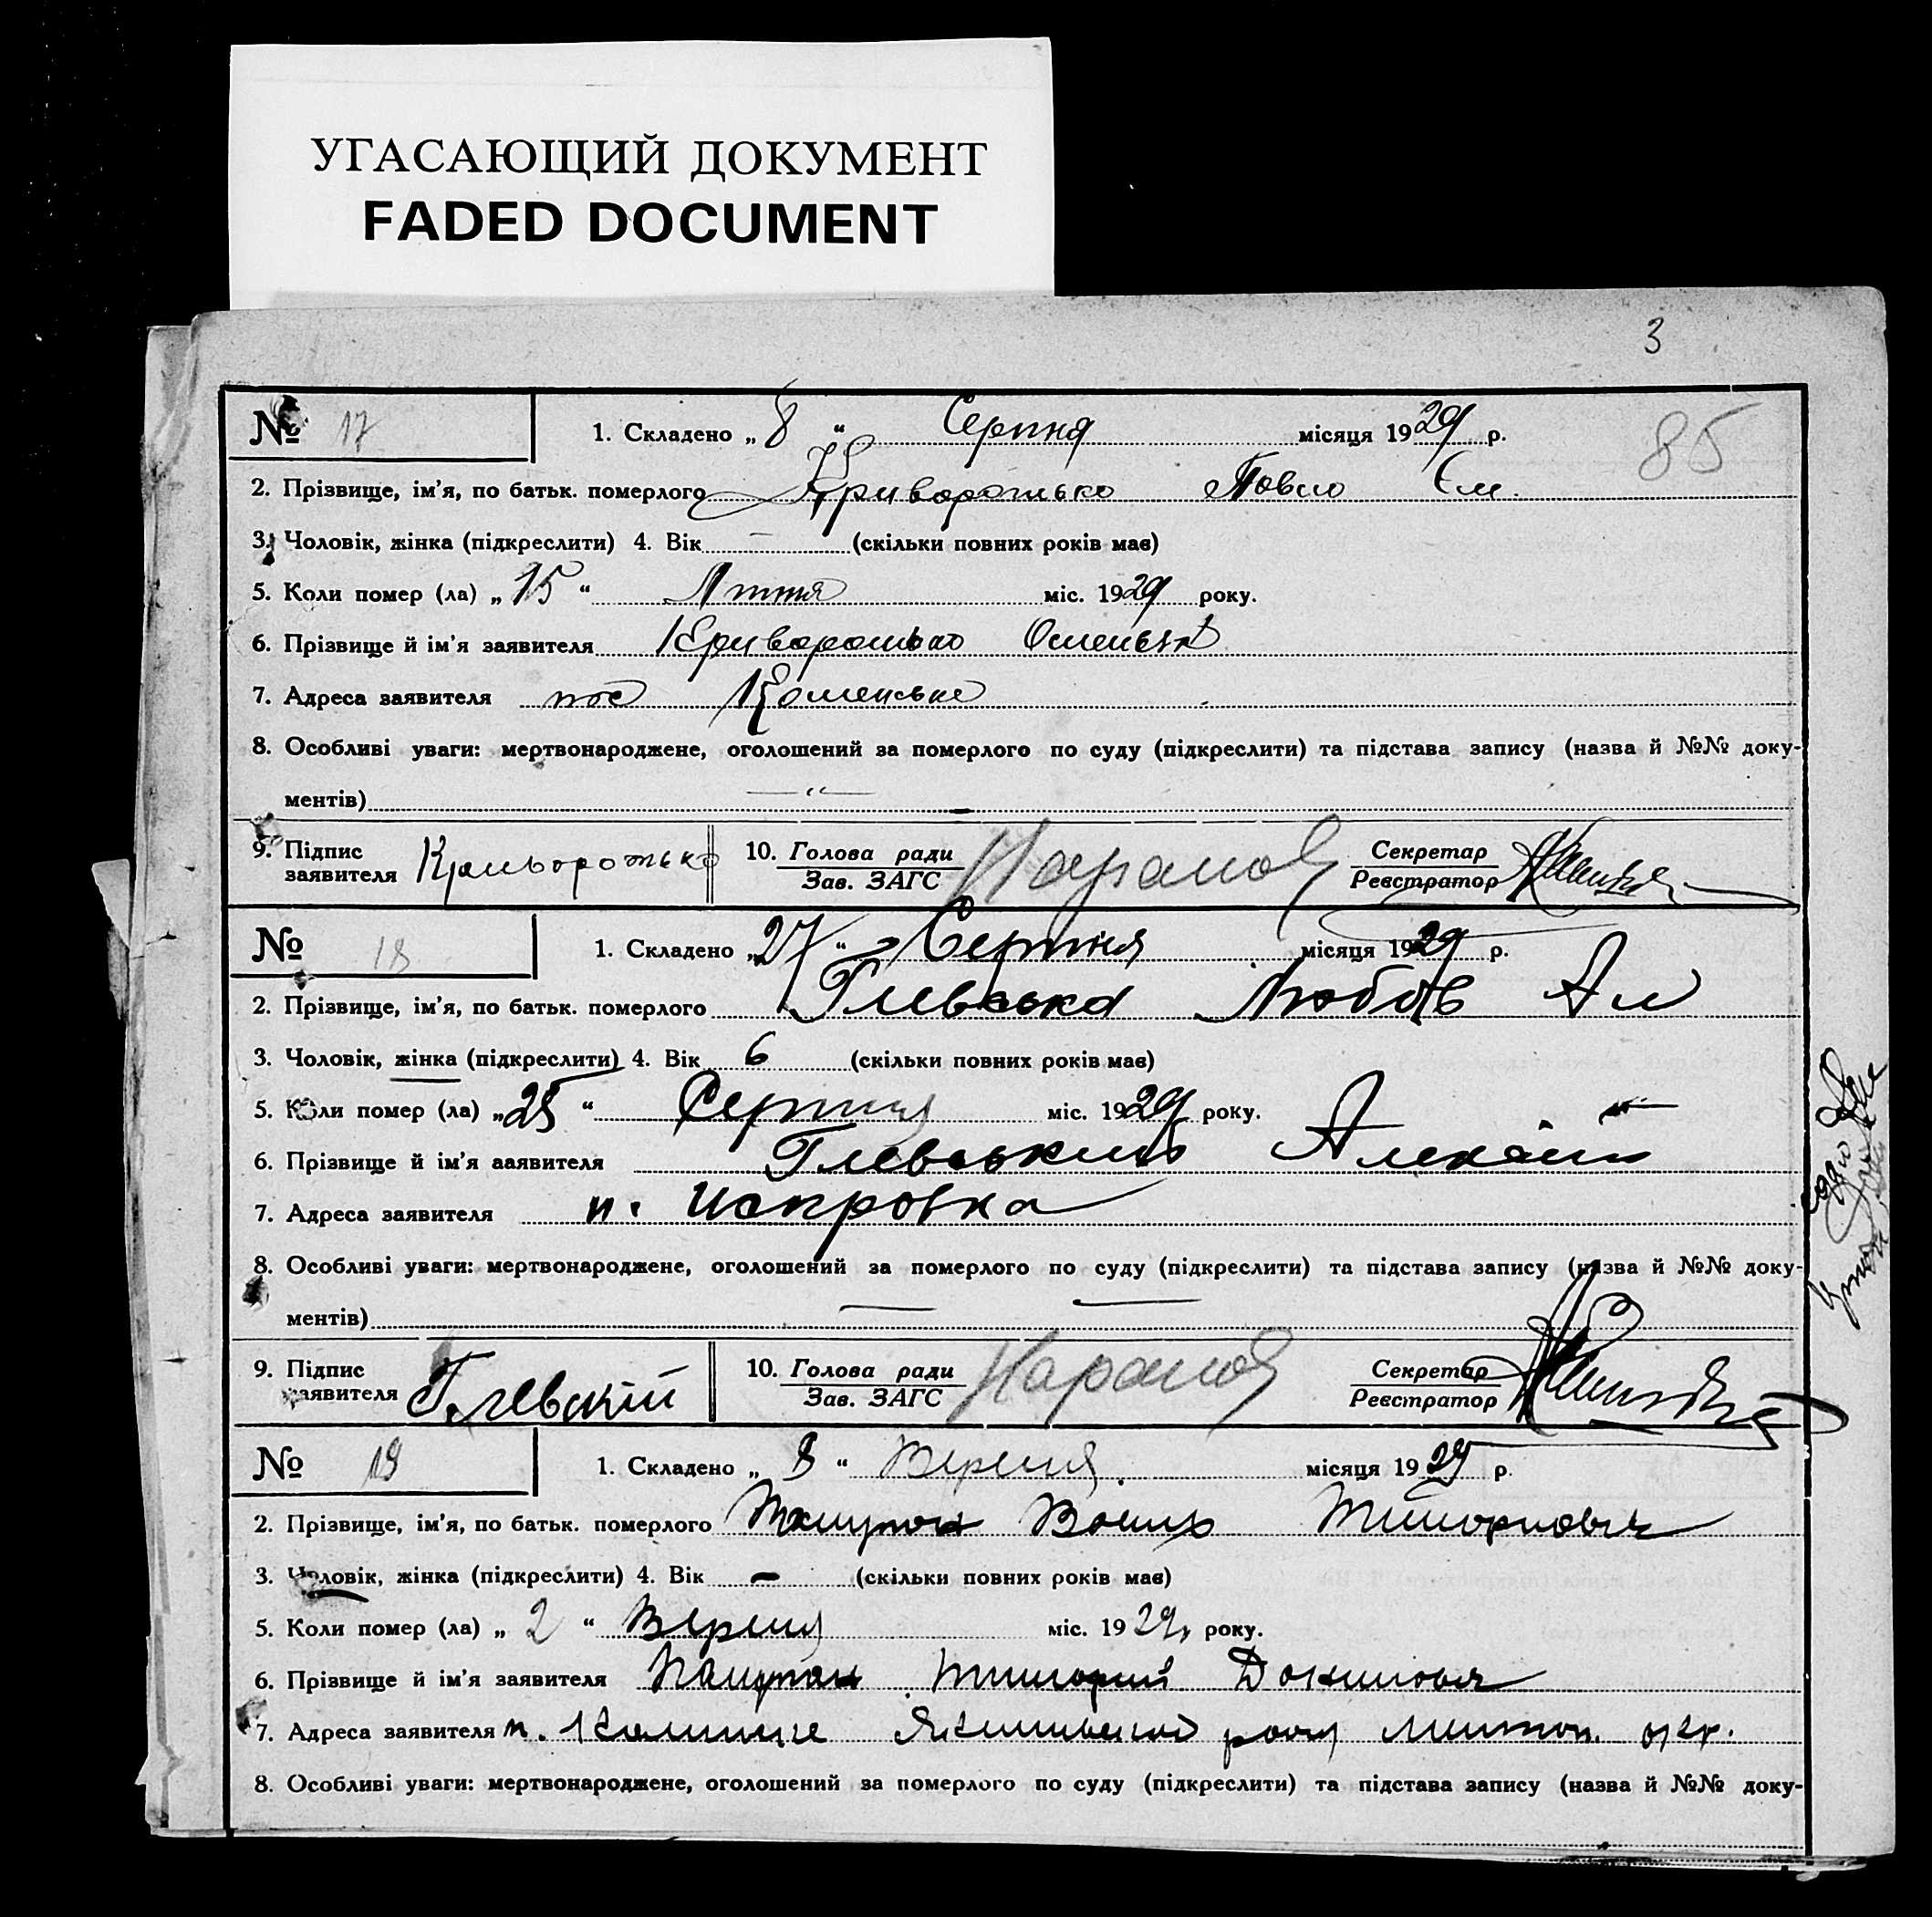 УГАСАЮЩИЙ ДОКУМЕНТ
FADED DOCUMENT
3
85
№ 17 1. Складено „ 8 “ Серпня місяця 1929 р.
2. Прізвище, ім'я, по батьк. померлого Криворотько Павло Ем.
3. Чоловік, жінка (підкреслити) 4. Вік — (скільки повних років має)
5. Коли помер (ла) „ 15 “ міс. 1929 року.
6. Прізвище й ім'я заявителя Криворотько
7. Адреса заявителя пос
8. Особливі уваги: мертвонароджене, оголошений за померлого по суду (підкреслити) та підстава запису (назва й №№ доку-
ментів) — “ —
9. Підпис заявителя Криворотько 10. Голова ради Зав. ЗАГС Секретар Реєстратор
№ 18 1. Складено „ 27 “ Серпня місяця 1929 р.
2. Прізвище, ім'я, по батьк. померлого Глевська Любов Ал
3. Чоловік, жінка (підкреслити) 4. Вік 6 (скільки повних років має)
5. Коли помер (ла) „ 25 “ Серпня міс. 1929 року.
6. Прізвище й ім'я аявителя Глевський
7. Адреса заявителя п. Искровка
8. Особливі уваги: мертвонароджене, оголошений за померлого по суду (підкреслити) та підстава запису (назва й №№ доку-
ментів) — —
9. Підпис заявителя Глевский 10. Голова ради Зав. ЗАГС Секретар Реєстратор
№ 19 1. Складено „ 8 “ Вересня місяця 1929 р.
2. Прізвище, ім'я, по батьк. померлого Василь
3. Чоловік, жінка (підкреслити) 4. Вік — (скільки повних років має)
5. Коли помер (ла) „ 2 “ Вересня міс. 1929 року.
6. Прізвище й ім'я заявителя
7. Адреса заявителя п. окр.
8. Особливі уваги: мертвонароджене, оголошений за померлого по суду (підкреслити) та підстава запису (назва й №№ доку-